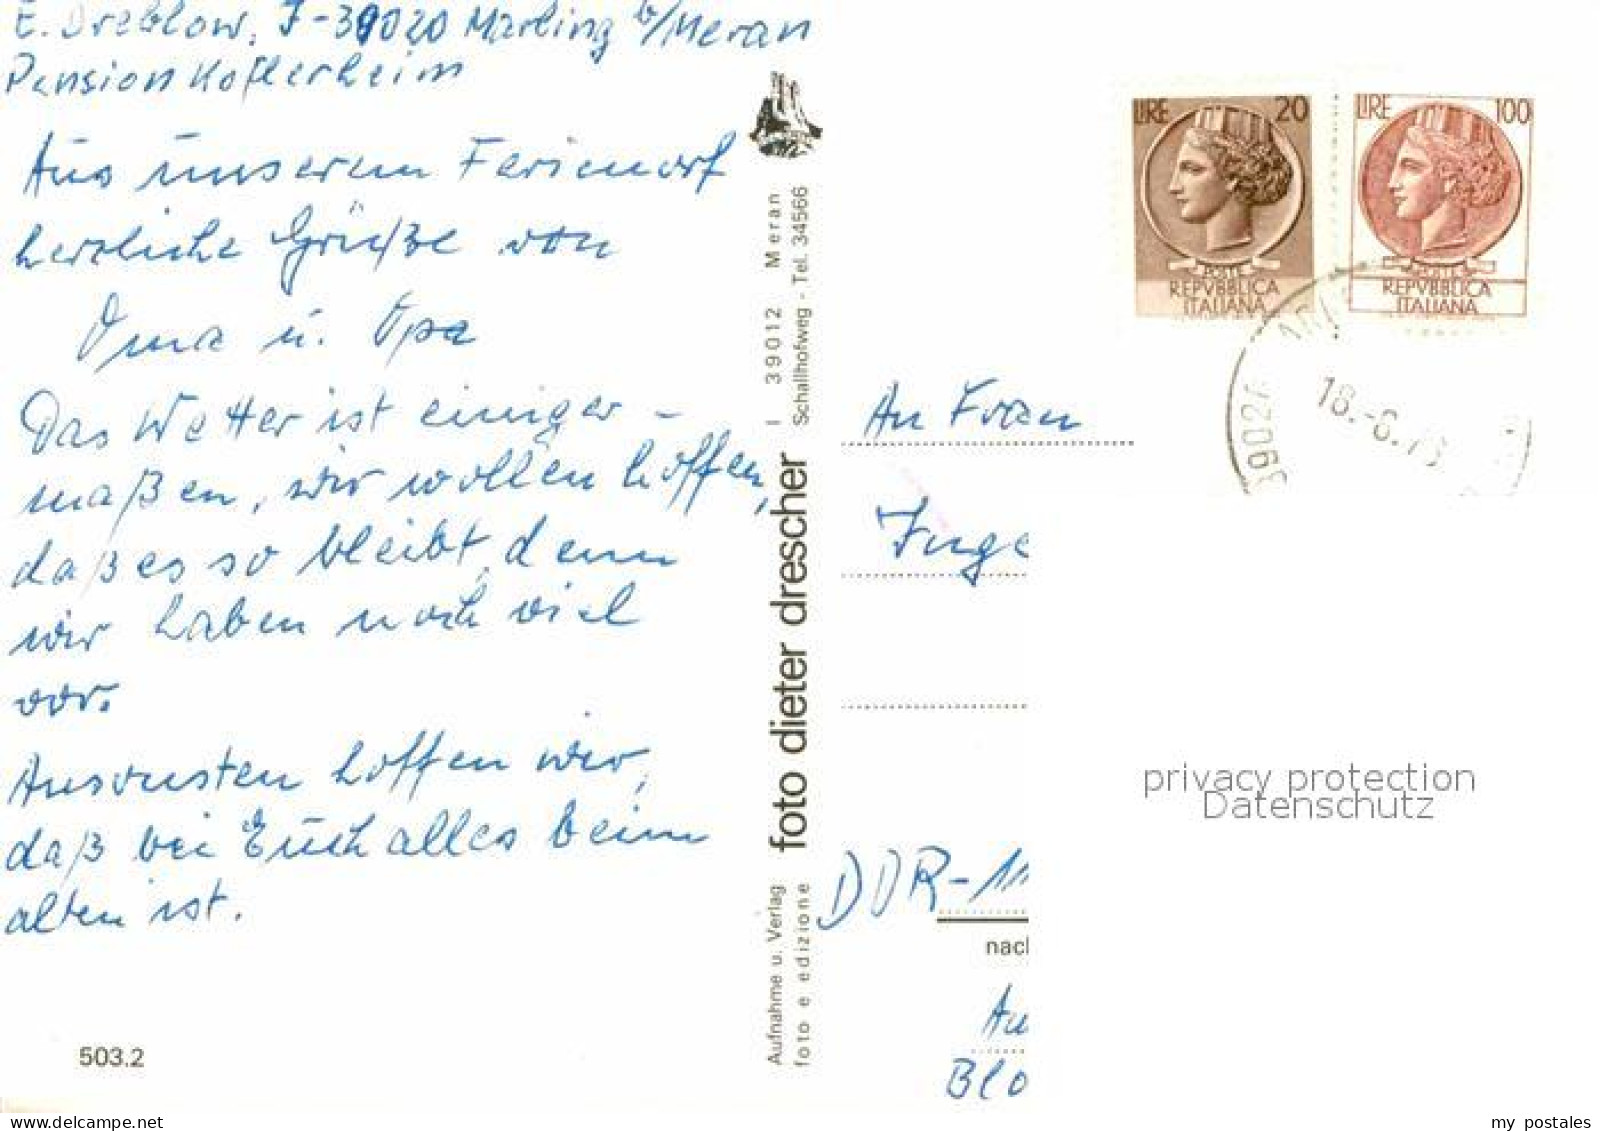 E. Dreblow, I-39020 Marling b/Meran
Pension Koflerheim
Aus unserem Feriendorf
herzliche Grüße von
Oma u. Opa
Das Wetter ist einiger-
maßen, wir wollen hoffen,
daß es so bleibt, denn
wir haben noch viel
vor.
Ansonsten hoffen wir,
daß bei Euch alles beim
alten ist.
503.2
Aufnahme u. Verlag foto dieter drescher I 39012 Meran
foto e edizione Schallhofweg - Tel. 34566
LIRE 20
POSTE
REPVBBLICA
ITALIANA
LIRE 100
POSTE
REPVBBLICA
ITALIANA
18.-6.73
3902
An Frau
Inge
DDR-11
nach
Au
Blo
privacy protection
Datenschutz
my postales